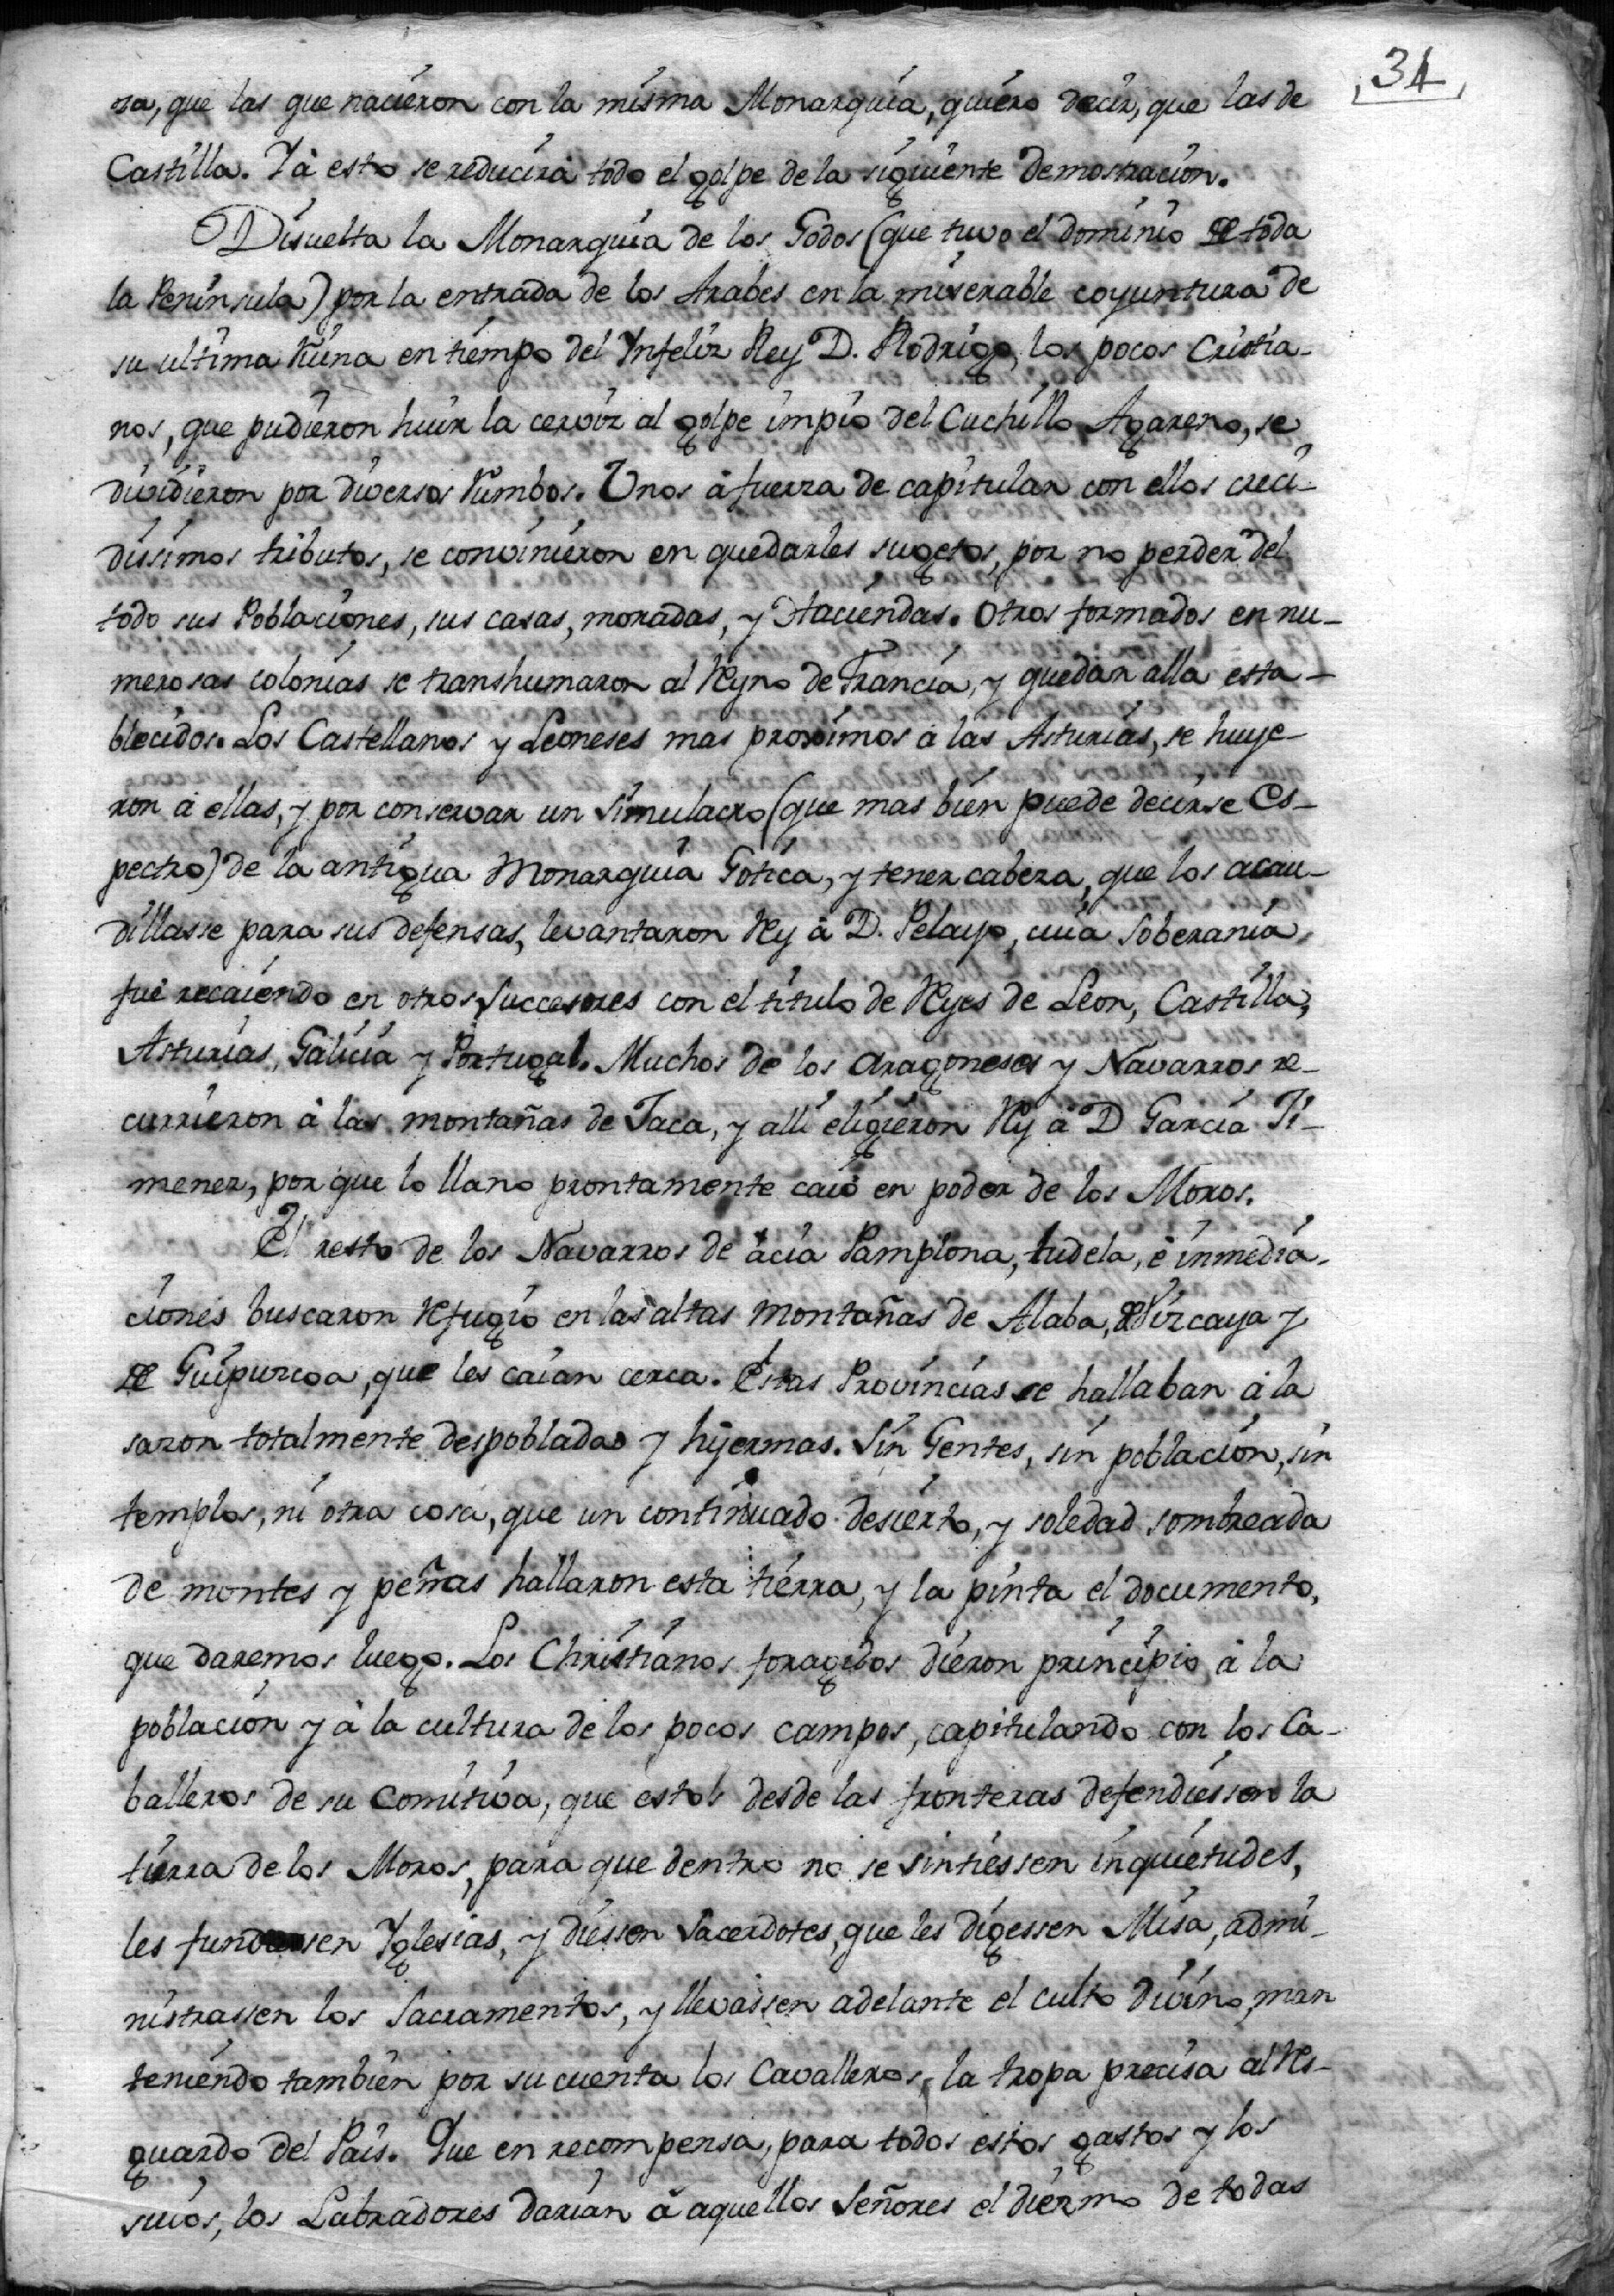 34
ra, que las que nacieron con la misma Monarquía, quiero decir, que las de
Castilla. Y à esto se reducirà todo el golpe de la siguiente Demostracion.
Disuelta la Monarquia de los Godos (que tuvo el dominio de toda
la Peninsula) por la entrada de los Arabes en la miserable coyuntura de
su ultima Ruina en tiempo del Ynfeliz Rey D. Rodrigo, los pocos Cristia-
nos, que pudieron huir la cerviz al golpe impio del Cuchillo Agareno, se
dividieron por diversos Rumbos. Unos à fuerza de capitular con ellos creci-
dissimos tributos, se convinieron en quedarles sugetos, por no perder del
todo sus Poblaciones, sus casas, moradas, y Haciendas. Otros formados en nu-
merosas colonias se transhumaron al Reyno de Francia, y quedàn alla esta-
blecidos. Los Castellanos y Leoneses mas proximos à las Asturias, se huye-
ron à ellas, y por conservar un Simulacro (que mas bien puede decirse Es-
pectro) de la antigua Monarquia Gotica, y tener cabeza, que los acau-
dillasse para sus defensas, levantaron Rey à D. Pelayo, cuia Soberania
fuè recaiendo en otros Successores con el titulo de Reyes de Leon, Castilla,
Asturias, Galicia y Portugal. Muchos de los Aragoneses y Navarros re-
currieron à las montañas de Jaca, y alli eligieron Rey à D Garcia Ji-
menez, por que lo llano prontamente caiò en poder de los Moros.
El resto de los Navarros de àcia Pamplona, tudela, è inmedia-
ciones buscaron Refugio en las altas montañas de Alaba, de Vizcaya y
de Guipuzcoa, que les caian cerca. Estas Provincias se hallaban à la
sazon totalmente despobladas y hyermas. Sin Gentes, sin poblacion, sin
templos, ni otra cosa, que un continuado desierto, y soledad sombreada
de montes y peñas hallaron esta tierra, y la pinta el documento,
que daremos luego. Los Christianos foragidos dieron principio à la
poblacion y à la cultura de los pocos campos, capitulando con los Ca-
balleros de su Comitiva, que estos desde las fronteras defendiessen la
tierra de los Moros, para que dentro no se sintiessen inquietudes,
les fundassen Yglesias, y diessen Sacerdotes, que les digessen Misa, admi-
nistrassen los Sacramentos, y llevassen adelante el culto divino, man
teniendo tambien por su cuenta los Cavalleros, la tropa precisa al Res-
guardo del Païs. Que en recompensa, para todos estos gastos y los
suios, los Labradores darian à aquellos Señores el diezmo de todas